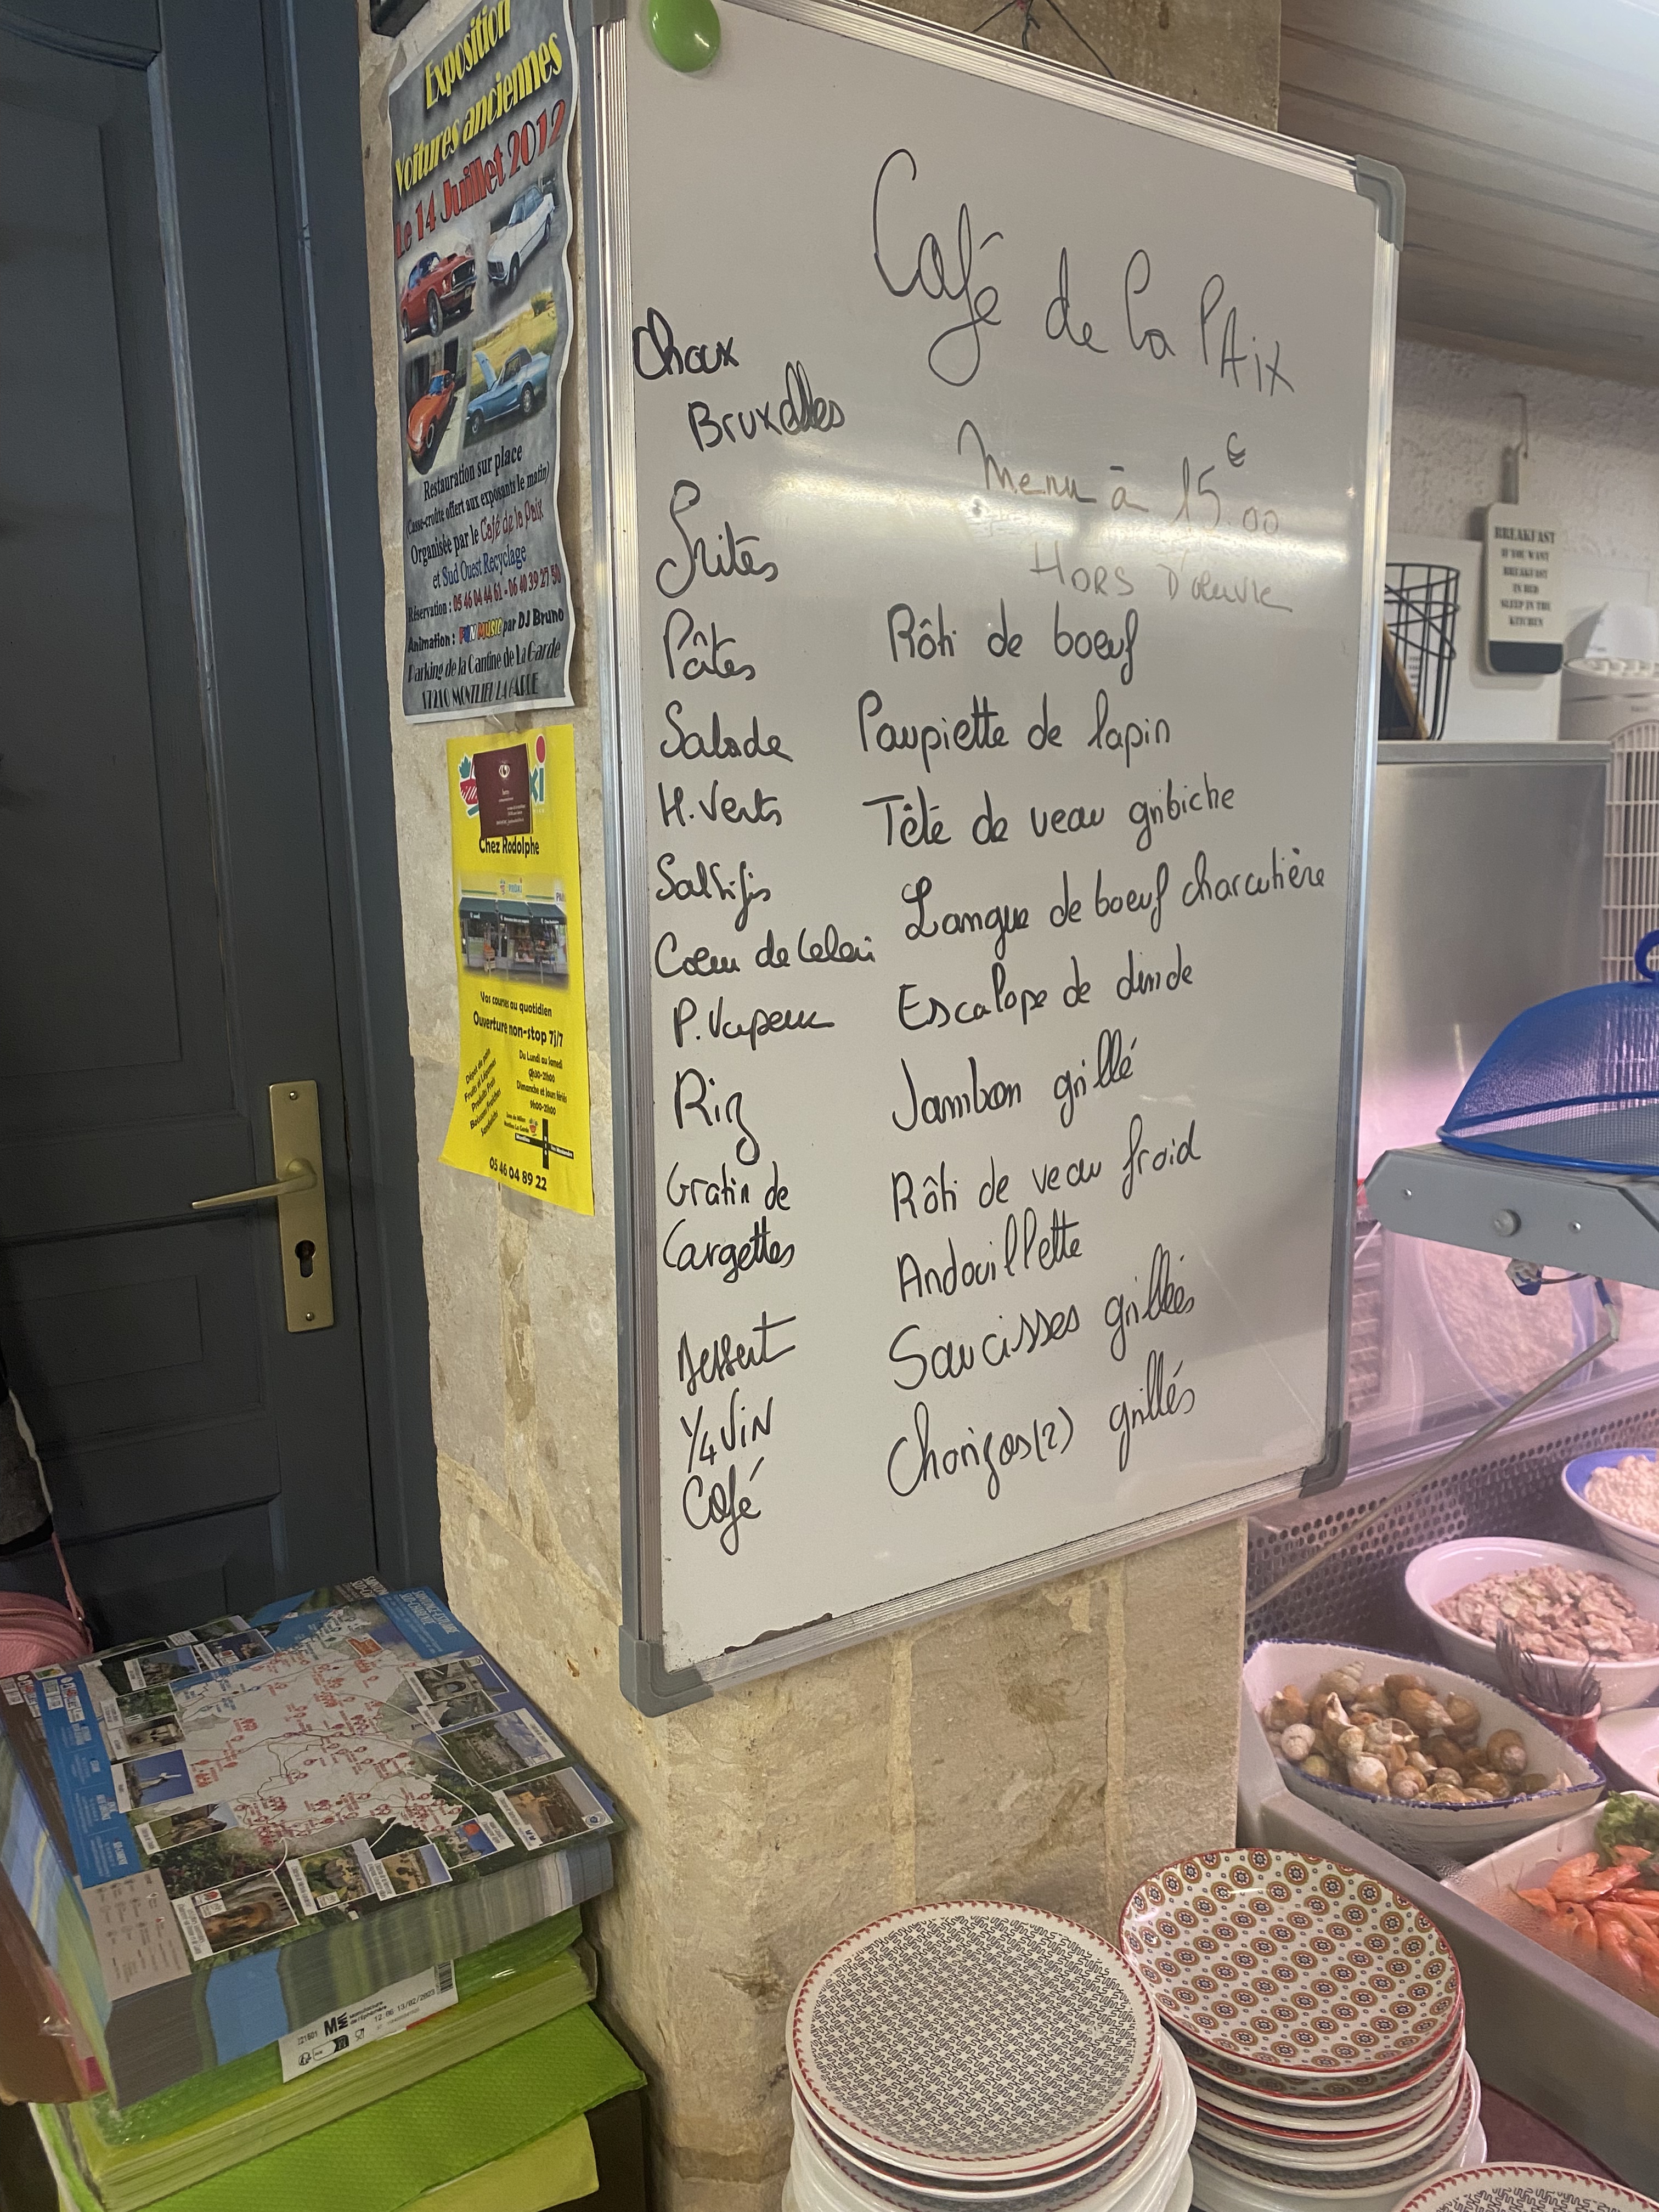 Exposition
Voitures anciennes
Le 14 Juillet 2012
Restauration sur place
(Casse-croûte offert aux exposants le matin)
Organisée par le Café de la Paix
et Sud Ouest Recyclage
Réservation : 05 46 04 44 61 - 06 40 39 27 50
Animation : FUN MUSIC par DJ Bruno
Parking de la Cantine de La Garde
17210 MONTLIEU LA GARDE
Chez Rodolphe
Vos courses au quotidien
Ouverture non-stop 7j/7
Du Lundi au Samedi
Dimanche et jours fériés
9h00-21h00
Dépôt de pain
Fruits et Légumes
Produits Frais
Boissons Fraîches
Sandwichs
05 46 04 89 22
Café de la PAix
Menu à 15€00
HORS D'œuvre
Choux
Bruxelles
Frites
Pâtes
Salade
H. Verts
Salsifis
Coeur de Celeri
P. Vapeur
Riz
Gratin de
Cargettes
Dessert
1/4 ViN
Café
Rôti de boeuf
Paupiette de lapin
Tête de veau gribiche
Langue de boeuf charcutière
Escalope de dinde
Jambon grillé
Rôti de veau froid
Andouillette
Saucisses grillées
Chorizos(2) grillés
BREAKFAST
IF YOU WANT
BREAKFAST
IN BED
SLEEP IN THE
KITCHEN
12:06 13/02/2023